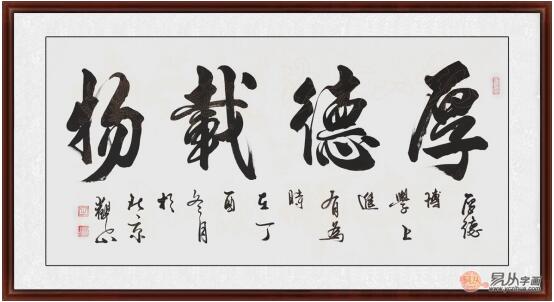 厚德載物
厚德博學上進有為時在丁酉冬月於北京觀山
易从字画
www.yczihua.com